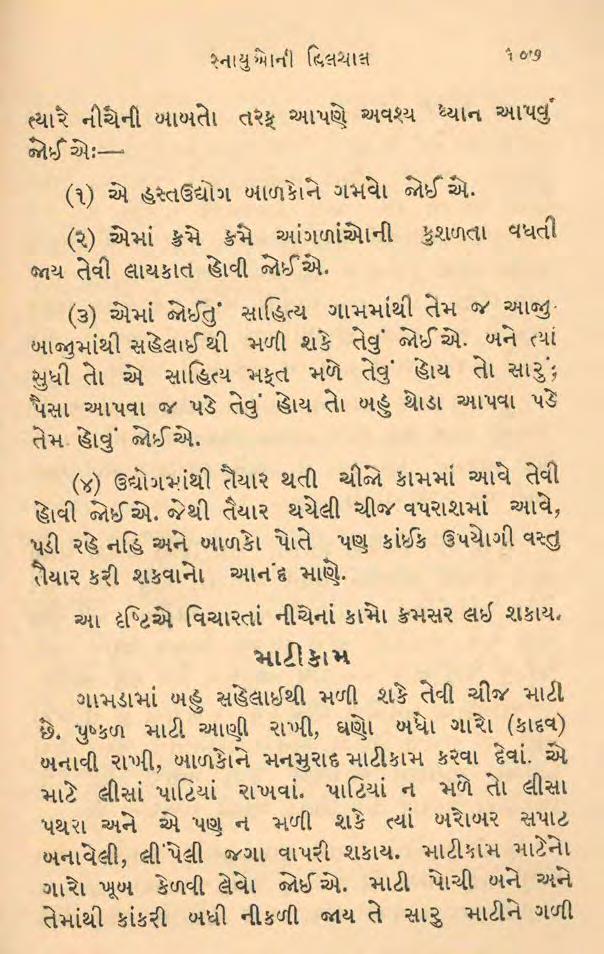 સ્નાયુઓની હિલચાલ ૧૦૭
ત્યારે નીચેની બાબતો તરફ આપણે અવશ્ય ધ્યાન આપવું
જોઈએ:—
(૧) એ હસ્તઉદ્યોગ બાળકોને ગમવો જોઈએ.
(૨) એમાં ક્રમે ક્રમે આંગળાંઓની કુશળતા વધતી
જાય તેવી લાયકાત હોવી જોઈએ.
(૩) એમાં જોઈતું સાહિત્ય ગામમાંથી તેમ જ આજુ-
બાજુમાંથી સહેલાઈથી મળી શકે તેવું જોઈએ. બને ત્યાં
સુધી તો એ સાહિત્ય મફત મળે તેવું હોય તો સારું;
પૈસા આપવા જ પડે તેવું હોય તો બહુ થોડા આપવા પડે
તેમ હોવું જોઈએ.
(૪) ઉદ્યોગમાંથી તૈયાર થતી ચીજો કામમાં આવે તેવી
હોવી જોઈએ. જેથી તૈયાર થયેલી ચીજ વપરાશમાં આવે,
પડી રહે નહિ અને બાળકો પોતે પણ કાંઈક ઉપયોગી વસ્તુ
તૈયાર કરી શકવાનો આનંદ માણે.
આ દૃષ્ટિએ વિચારતાં નીચેનાં કામો ક્રમસર લઈ શકાય.
માટીકામ
ગામડામાં બહુ સહેલાઈથી મળી શકે તેવી ચીજ માટી
છે. પુષ્કળ માટી આણી રાખી, ઘણો બધો ગારો (કાદવ)
બનાવી રાખી, બાળકોને મનમુરાદ માટીકામ કરવા દેવાં. એ
માટે લીસાં પાટિયાં રાખવાં. પાટિયાં ન મળે તો લીસા
પથરા અને એ પણ ન મળી શકે ત્યાં બરોબર સપાટ
બનાવેલી, લીંપેલી જગા વાપરી શકાય. માટીકામ માટેનો
ગારો ખૂબ કેળવી લેવો જોઈએ. માટી પોચી બને અને
તેમાંથી કાંકરી બધી નીકળી જાય તે સારુ માટીને ગળી